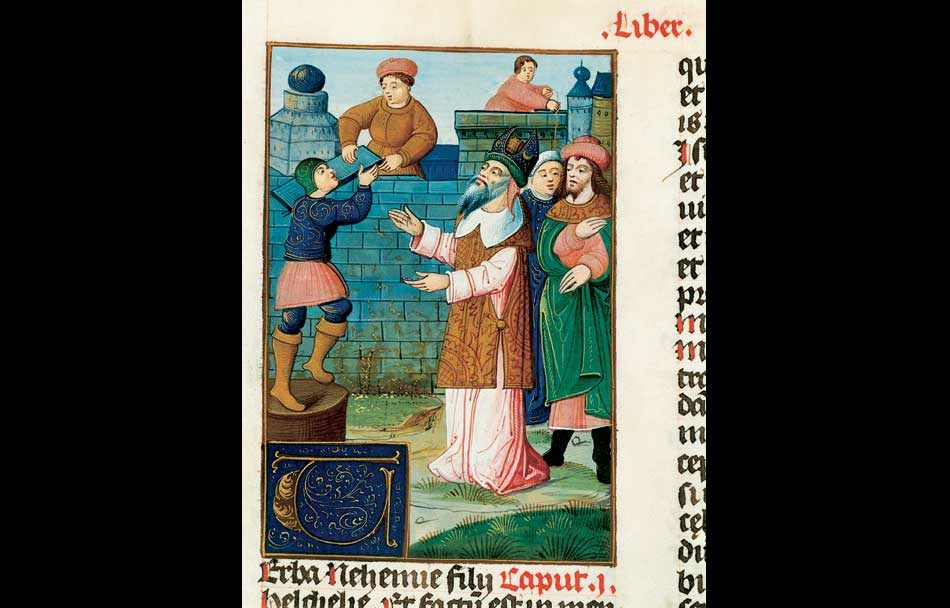 . Liber .
U
Erba Nehemie filij Caput .j.
helchelie. Et factū est in men
qu
et
is
et
ui
et
et
pr
tra
dā
cep
si
du
bi